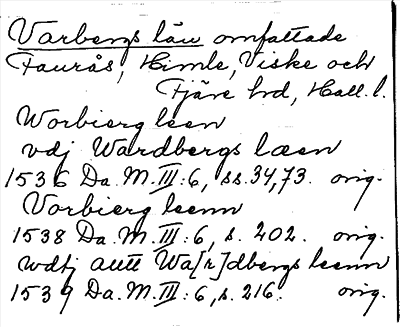 Varbergs län omfattade
Faurås, Himle, Viske och
Fjäre hd, Hall. l.
Worbierg leen
vdj Wardbergs læen
1536 Da. M. III: 6, ss. 34, 73. orig.
Vorbierg leenn
1538 Da. M. III: 6, s. 202. orig.
wdtj autt Wa[r]dbergs leenn
1539 Da. M. III: 6, s. 216. orig.